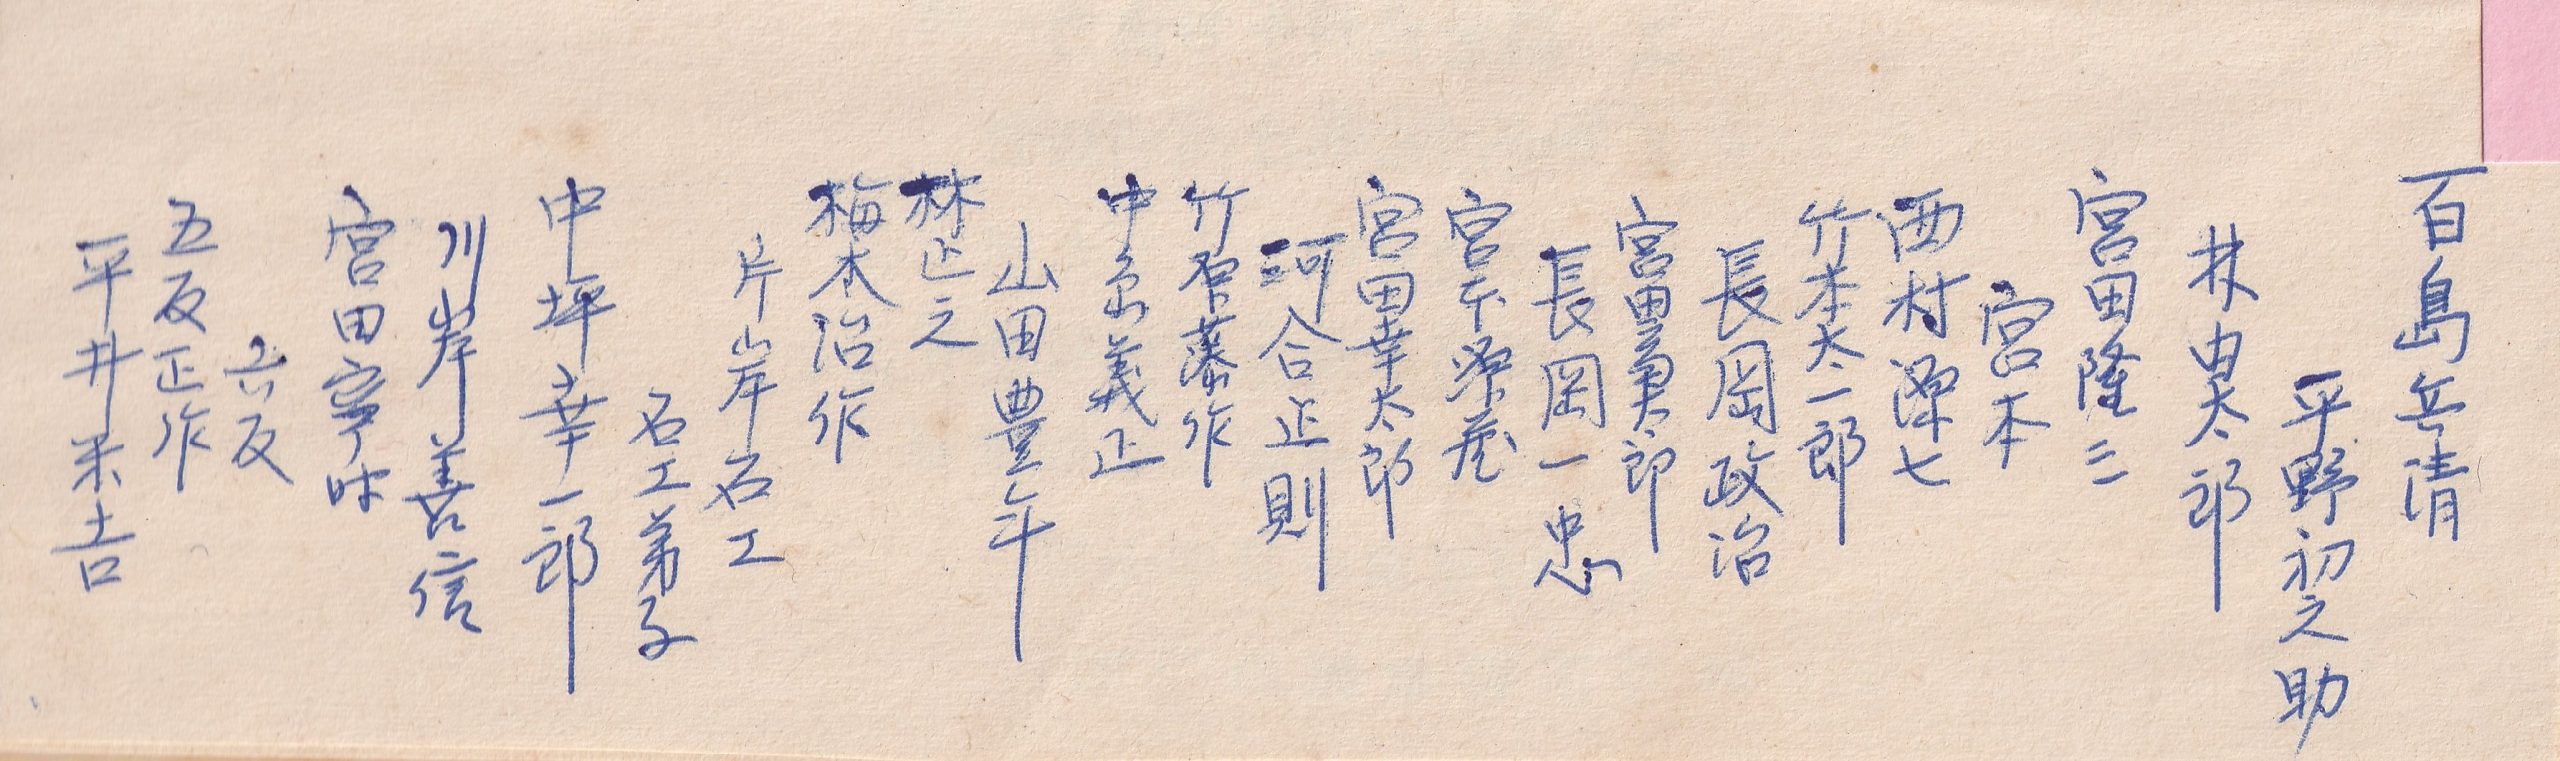 百島岳清
平野初之助
林由太郎
宮田隆三
宮本
西村澤七
竹本太一郎
長岡政治
宮田勇太郎
長岡一忠
宮下
宮田幸太郎
河合正則
竹 藤作
中島義正
山田豊年
林正之
梅木治作
片岸石工
石工弟子
中坪幸一郎
川岸善信
宮田
六反
五反正作
平井米吉